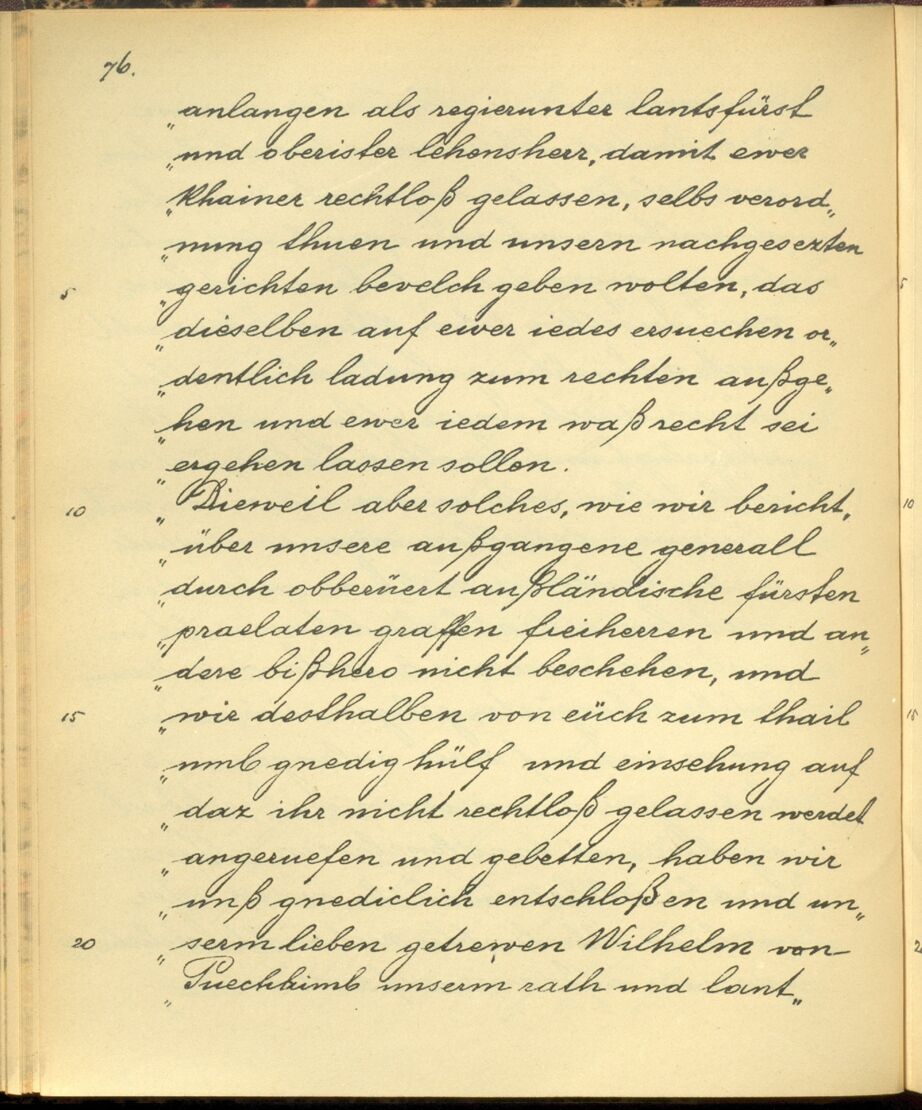 76.
„anlangen als regierunter lantsfürst
„und oberister lehensherr, damit ewer
„khainer rechtloß gelassen, selbs verord„
„nung thuen und unsern nachgesezten
5 „gerichten bevelch geben wolten, das
„dieselben auf ewer iedes ersuechen or„
„dentlich ladung zum rechten außge„
„hen und ewer iedem waß recht sei
„ergehen lassen sollen.
10 „Dieweil aber solches, wie wir bericht,
„über unsere außgangene generall
„durch obberüert außländische fürsten
„praelaten graffen freiherren und an„
„dere bißhero nicht beschehen, und
15 „wir desthalben von eüch zum thail
„umb gnedig hülf und einsehung auf
„daz ihr nicht rechtloß gelassen werdet
„angeruefen und gebetten, haben wir
„unß gnediclich entschloßen und un„
20 „serm lieben getrewen Wilhelm von
„Puechhimb unserm rath und lant„